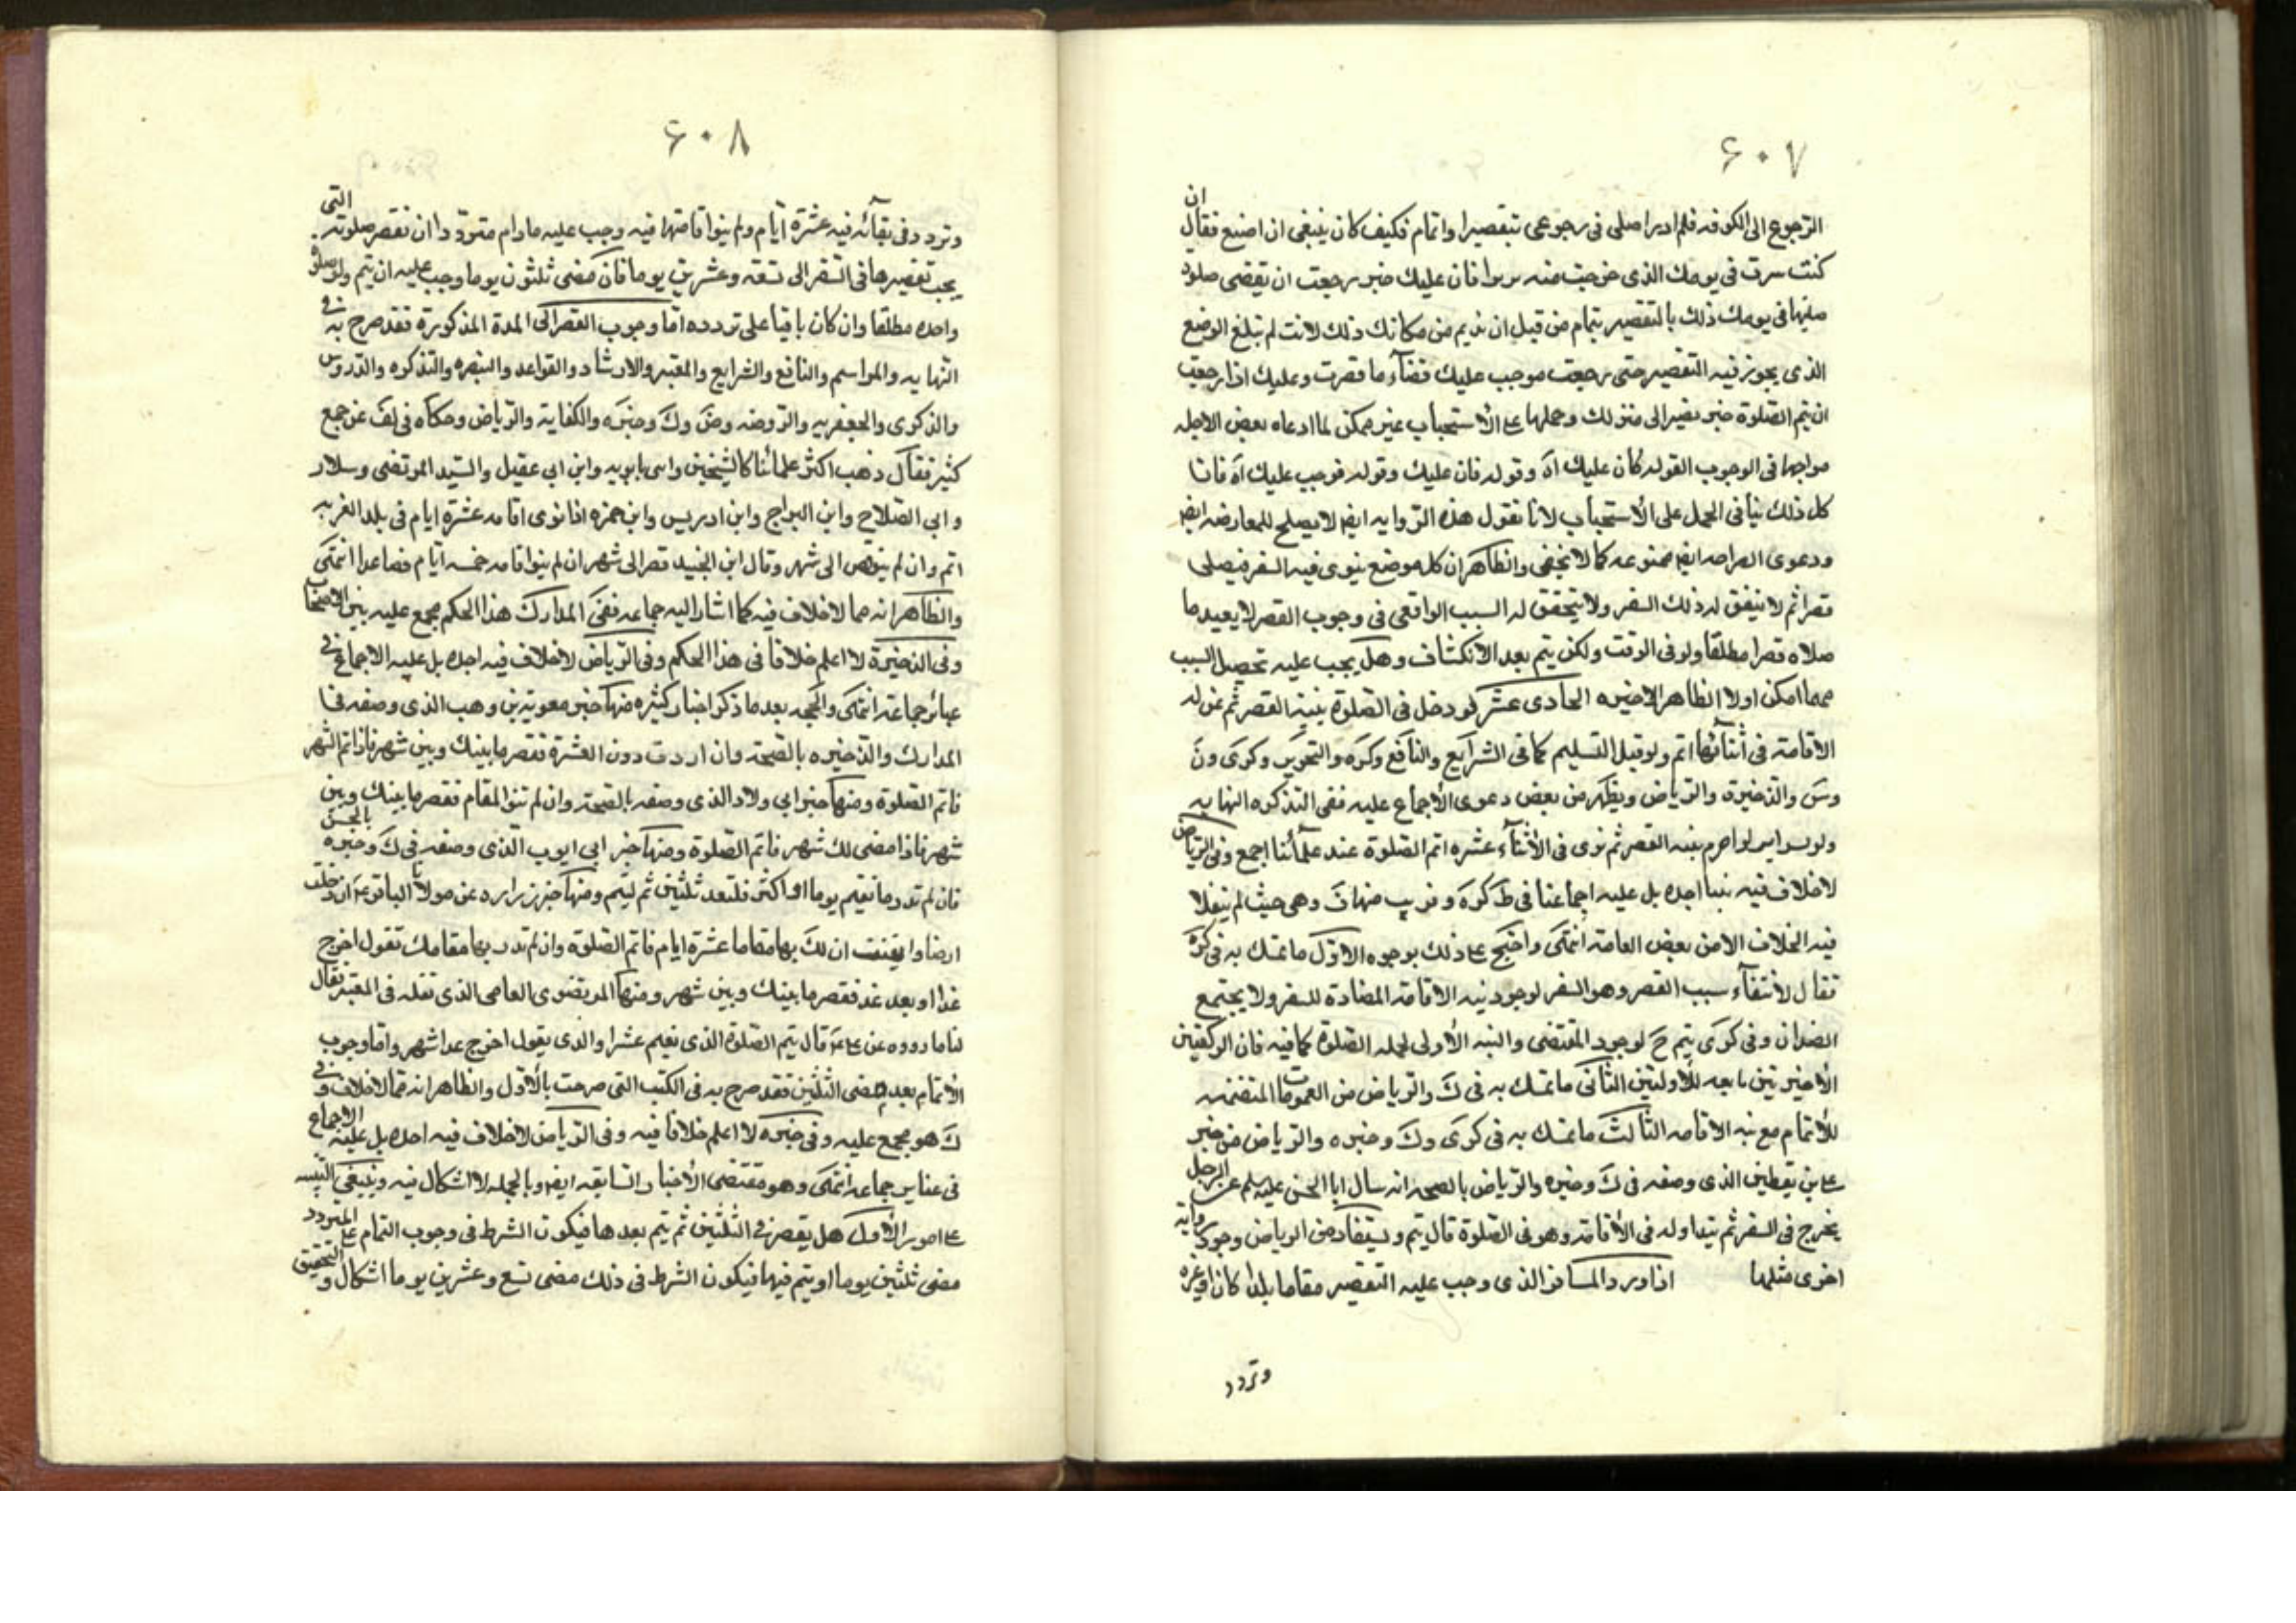 ۶۰۷
الرجوع الى الكوفه فلم ادر اصلى فى رجوعى بتقصير او اتمام فكيف كان ينبغى ان اصنع فقال ان
كنت سرت فى يومك الذى خرجت فيه بريدا فان عليك حين رجعت ان تقضى صلوة
صليتها فى يومك ذلك بالتقصير بتمام من قبل ان تريم من مكانك ذلك لانك لم تبلغ الموضع
الذى يجوز فيه التقصير حتى رجعت فوجب عليك قضاء ما قصرت وعليك اذا رجعت
ان تتم الصلوة حتى تصير الى منزلك وحملها على الأستحباب غير ممكن لما ادعاه بعض الاجله
صراحتها فى الوجوب لقوله كان عليك اه وقوله فان عليك وقوله فوجب عليك اه فان
كل ذلك ينافى الحمل على الأستحباب لانا نقول هذه الروايه ايضا لا يصلح للمعارضه ايضا
ودعوى الصراحه ايضا ممنوعه كما لا يخفى والظاهر ان كل موضع ينوى فيه السفر فيصلى
قصرا ثم لا يتفق له ذلك السفر ولا يتحقق له السبب الواقعى فى وجوب القصر لا يعيد ما
صلاه قصرا مطلقا ولو فى الوقت ولكن يتم بعد الانكشاف وهل يجب عليه تحصيل السبب
مهما امكن او لا الظاهر الاخير الحادى عشر لو دخل فى الصلوة بنية القصر ثم عن له
الاقامة فى أثنائها اتم ولو قبل التسليم كما فى الشرايع والنافع وكره والتحرير وكرى ون
وس والذخيرة والرياض ويظهر من بعض دعوى الأجماع عليه ففى التذكره النهايه
ولو احرم بنية القصر ثم نوى فى الأثناء عشره اتم الصلوة عند علمائنا اجمع وفى الرياض
لا خلاف فيه بيننا اجده بل عليه اجماعنا فى ظ كره وقريب منها ف وهى حيث لم ينقلا
فيه الخلاف الا من بعض العامة انتهى واحتج على ذلك بوجوه الاول ما تمسك به فى كره
فقال لأنتفاء سبب القصر وهو السفر لوجود نيه الاقامة المضادة للسفر ولا يجتمع
الضدان وفى كرى يتم ح لوجود المقتضى والنيه الأولى لجمله الصلوة كافيه فان الركعتين
الأخيرتين تابعه للأوليتين الثانى ما تمسك به فى ك والرياض من العمومات المتضمنه
للأتمام مع نيه الاقامه الثالث ما تمسك به فى كرى وك وخيره والرياض من خبر
على بن يقطين الذى وصفه فى ك وخيره والرياض بالصحه انه سال ابا الحسن عليه سلم عن الرجل
يخرج فى السفر ثم يبدا وله فى الأقامة وهو فى الصلوة قال يتم ويستفاد من الرياض وجود رواية
اخرى مثلها اذا ورد المسافر الذى وجب عليه التقصير مقاما بلدا كان او غيره
وتردد
۶۰۸
وتردد فى بقائه فيه عشرة ايام ولم ينو اقامتها فيه وجب عليه ما دام مترددا ان يقصر صلوته التى
يجب تقصيرها فى السفر الى تسعه وعشرين يوما فان مضى ثلثون يوما وجب عليه ان يتم ولو صلوة
واحده مطلقا وان كان باقيا على تردده اما وجوب القصر الى المدة المذكورة فقد صرح به فى
النهايه والمراسم والنافع والشرايع والمعتبر والارشاد والقواعد والتبصره والتذكره والدروس
والذكرى والجعفريه والروضه وض وك وخيره والكفاية والرياض وحكاه فى لف عن جمع
كثير فقال ذهب اكثر علمائنا كالشيخين وابنى بابويه وابن ابى عقيل والسيد المرتضى وسلار
وابى الصلاح وابن البراج وابن ادريس وابن حمزه اذا نوى اقامه عشرة ايام فى بلد الغربه
اتم وان لم ينو قصر الى شهر وقال ابن الجنيد قصر الى شهر ان لم ينو اقامه خمسه ايام فصاعدا انتهى
والظاهر انه مما لا خلاف فيه كما اشار اليه جماعه ففى المدارك هذا الحكم مجمع عليه بين الاصحاب
وفى الذخيرة لا اعلم خلافا فى هذا الحكم وفى الرياض لا خلاف فيه اجده بل عليه الاجماع فى
عبائر جماعة انتهى والحجه بعد ما ذكر اخبار كثيره منها خبر معوية بن وهب الذى وصفه فى
المدارك والذخيره بالصحة وان اردت دون العشرة فقصر ما بينك وبين شهر فاذا تم الشهر
فاتم الصلوة ومنها خبر ابى ولاد الذى وصفه بالصحة وان لم تنو المقام فقصر ما بينك وبين
شهر فاذا مضى لك شهر فاتم الصلوة ومنها خبر ابى ايوب الذى وصفه فى ك وخيره بالحسن
فان لم تدر ما تقيم يوما او اكثر فلتعد ثلثين ثم ليتم ومنها خبر زراره عن مولانا الباقر ع ان دخلت
ارضا وايقنت ان لك بها مقاما عشرة ايام فاتم الصلوة وان لم تدر بها مقامك تقول اخرج
غدا او بعد غد فقصر ما بينك وبين شهر ومنها المرتضوى العامى الذى نقله فى المعتبر فقال
لنا ما رووه عن على ع قال يتم الصلوة الذى يقيم عشرا والذى يقول اخرج غدا شهر واما وجوب
الأتمام بعد مضى الثلثين فقد صرح به فى الكتب التى صرحت بالأول والظاهر انه مما لا خلاف فيه وفى
ك هو مجمع عليه وفى خيره لا اعلم خلافا فيه وفى الرياض لا خلاف فيه اجده بل عليه الاجماع
فى عباير جماعه انتهى وهو مقتضى الأخبار السابقه ايضا وبالجمله لا اشكال فيه وينبغى التنبيه
على امور الأول هل يقصر فى الثلثين ثم يتم بعدها فيكون الشرط فى وجوب التمام على المتردد
مضى ثلثين يوما او يتم فيها فيكون الشرط فى ذلك مضى تسع وعشرين يوما اشكال والتحقيق